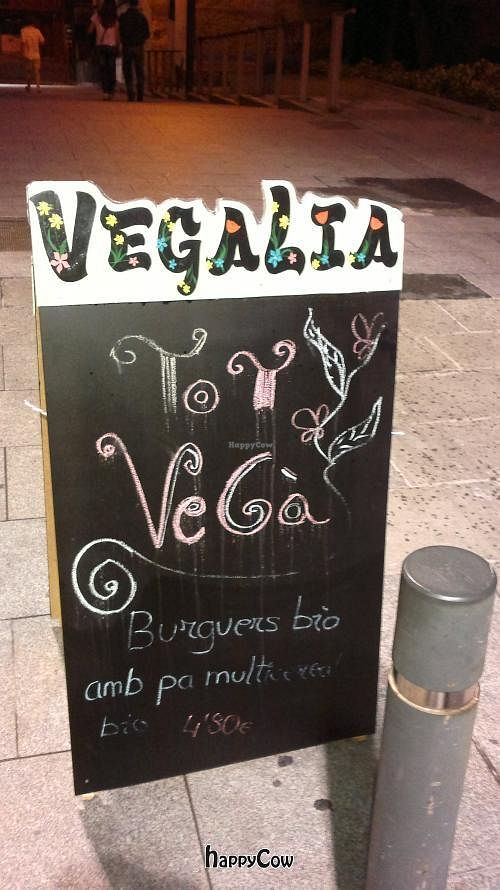 VEGALIA
ToT
VeGà
Burguers bio
amb pa multicereal
bio 4'80€
HappyCow
happyCow